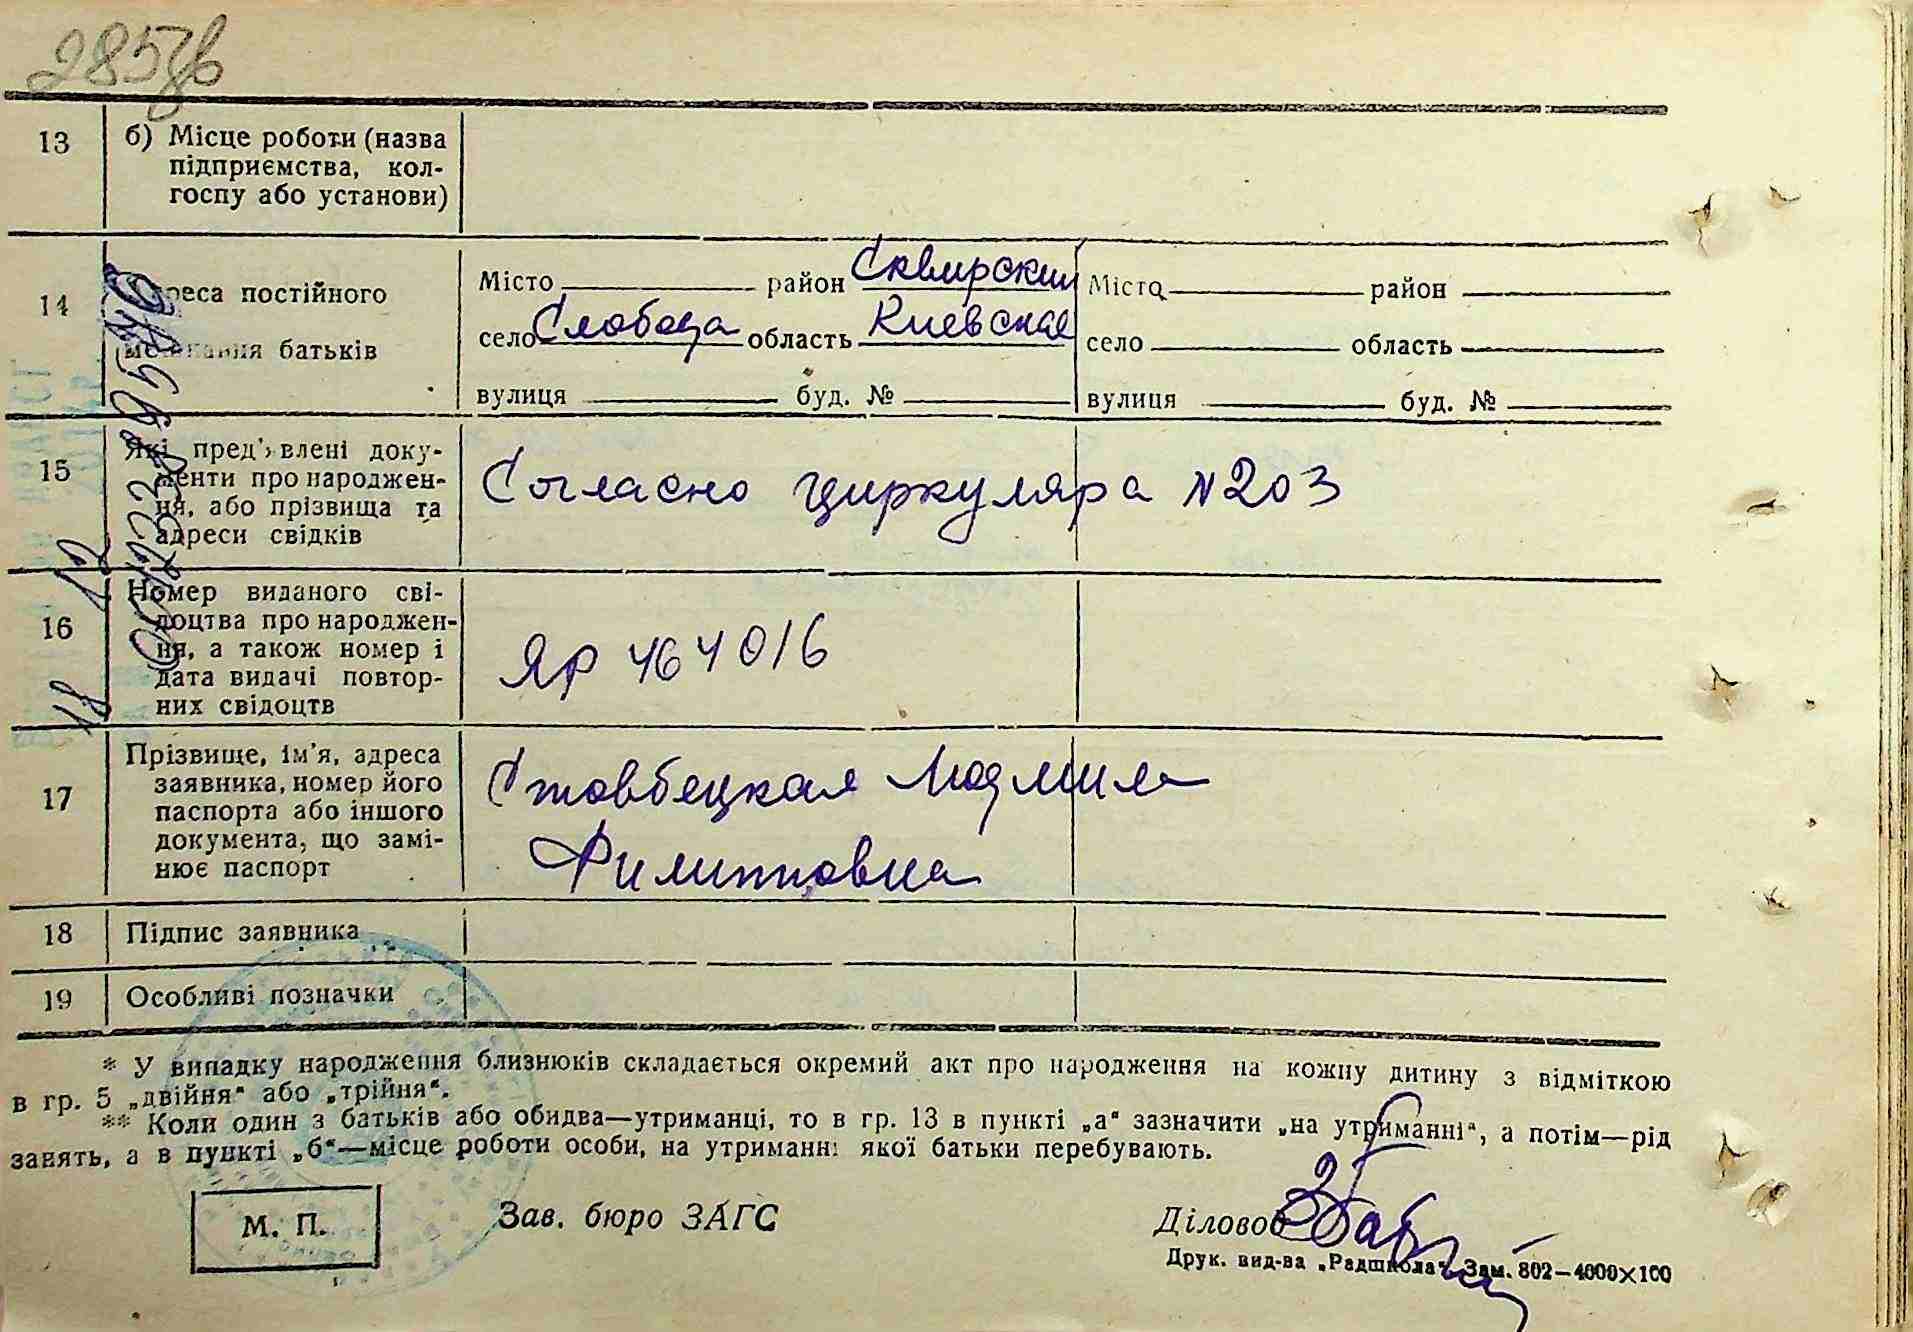 285зв
13 б) Місце роботи (назва
підприємства, кол-
госпу або установи)
14 Адреса постійного
мешкання батьків
Місто район Сквирский
село Слобода область Киевская
вулиця буд. №
Місто район
село область
вулиця буд. №
15 Які пред'явлені доку-
менти про народжен-
ня, або прізвища та
адреси свідків
Согласно циркуляра N203
16 Номер виданого сві-
доцтва про народжен-
ня, а також номер і
дата видачі повтор-
них свідоцтв
ЯР 464016
17 Прізвище, ім'я, адреса
заявника, номер його
паспорта або іншого
документа, що замі-
нює паспорт
Стовбецкая Людмила
Филипповна
18 Підпис заявника
19 Особливі позначки
* У випадку народження близнюків складається окремий акт про народження на кожну дитину з відміткою
в гр. 5 „двійня“ або „трійня“.
** Коли один з батьків або обидва—утриманці, то в гр. 13 в пункті „а“ зазначити „на утриманні“, а потім—рід
занять, а в пункті „б“—місце роботи особи, на утриманні якої батьки перебувають.
М. П.
Зав. бюро ЗАГС
Діловод
Друк. вид-ва „Радшкола“. Зам. 802—4000×100